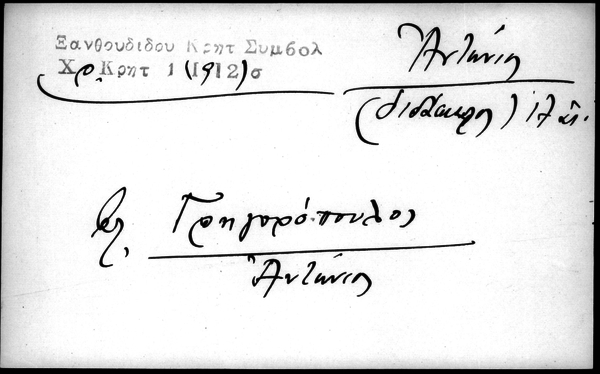 Ξανθουδιδου Κρητ Συμβολ
Χρ. Κρητ 1 (1912) σ
Ἀντώνιος
(διδάσκαλος) 17 αἰ.
βλ. Γρηγορόπουλος
Ἀντώνιος